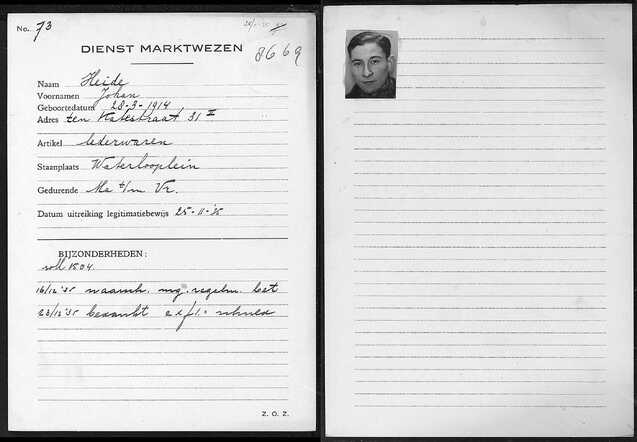 No. 73
DIENST MARKTWEZEN
8669
Naam Heide
Voornamen Johan
Geboortedatum 28-3-1914
Adres ten Katestraat 31 II
Artikel lederwaren
Staanplaats Waterlooplein
Gedurende Ma t/m Vr.
Datum uitreiking legitimatiebewijs 25-11-'35
BIJZONDERHEDEN:
voll 1804.
16/12 '35 naamk. mg. regelm. bet
23/12 '35 schuld
Z. O. Z.